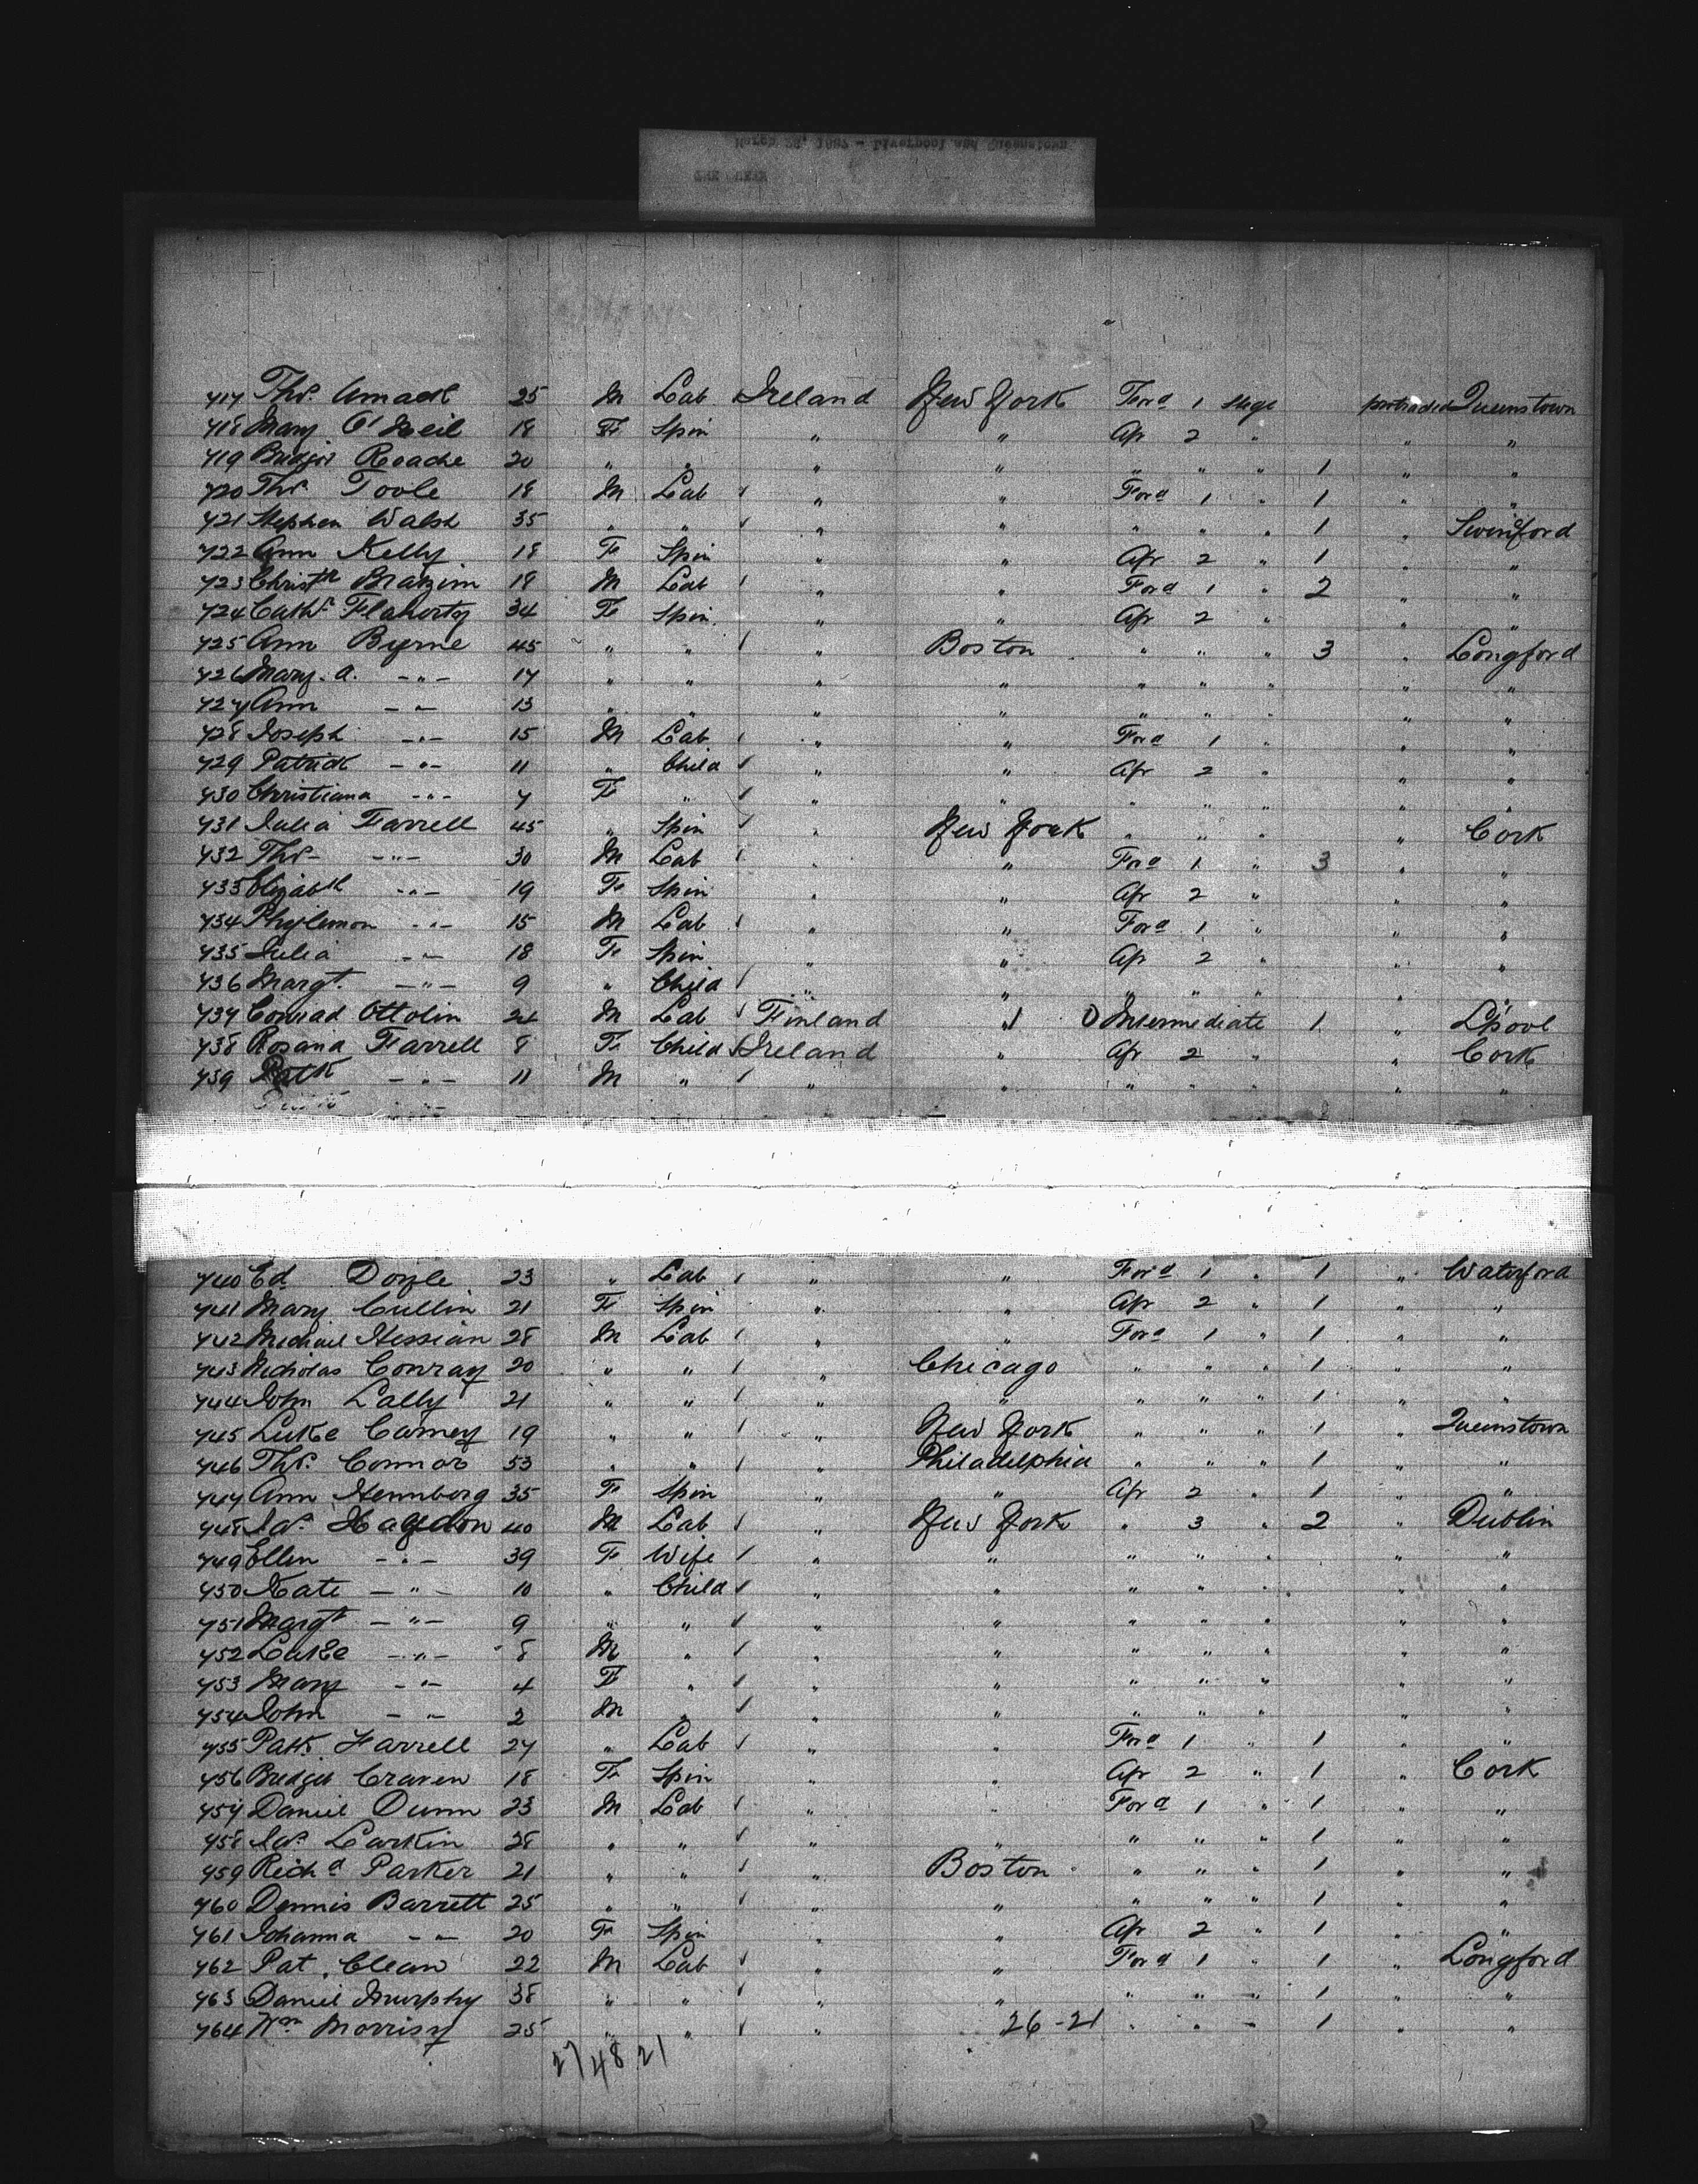 717 Thos. 25 M Lab Ireland New York Ford 1 Stge protracted Queenstown
718 Mary O'Neil 18 F Spin " " Af 2 " " "
719 Roache 20 " " " " " " " 1 " "
720 Thos. Toole 18 M Lab " " Ford 1 " 1 " "
721 Stephen Walsh 35 " " " " " " " 1 " Swinford
722 Ann Kelly 18 F Spin " " Af 2 " 1 " "
723 Christr 18 M Lab " " Ford 1 " 2 " "
724 Cathe Flaherty 34 F Spin " " Af 2 " " "
725 Ann Byrne 45 " " " Boston " " " 3 " Longford
726 Mary. A. -"- 17 " " " " " " " " "
727 Ann -"- 13 " " " " " " " " "
728 Joseph -"- 15 M Lab " " Ford 1 " " "
729 Patrick -"- 11 " Child " " Af 2 " " "
730 Christiana -"- 7 F " " " " " " " "
731 Julia Farrell 45 " Spin " New York " " " " Cork
732 Thos -"- 30 M Lab " " Ford 1 " 3 " "
733 Elizabth -"- 19 F Spin " " Af 2 " " "
734 -"- 15 M Lab " " Ford 1 " " "
735 Julia -"- 18 F Spin " " Af 2 " " "
736 Margt. -"- 9 " Child " " " " " " "
737 Conrad Ottolin M Lab Finland " Intermediate 1 " L'pool
738 Rosana Farrell 8 F Child Ireland " Af 2 " " Cork
739 Patk -"- 11 M " " " " " " " "
740 Ed Doyle 23 " Lab " " Ford 1 " 1 " Waterford
741 Mary Cullin 21 F Spin " " Af 2 " 1 " "
742 Michael Hessian 28 M Lab " " Ford 1 " 1 " "
743 Nicholas Conray 20 " " " Chicago " " " 1 " "
744 John Lally 21 " " " " " " " 1 " "
745 Luke Carney 19 " " " New York " " " 1 " Queenstown
746 Thos. Connor 53 " " " Philadelphia " " " 1 " "
747 Ann 35 F Spin " " Af 2 " 1 " "
748 Jas. Haydon 40 M Lab " New York " 3 " 2 " Dublin
749 Ellen -"- 39 F Wife " " " " " " "
750 Kate -"- 10 " Child " " " " " " "
751 Margt -"- 9 " " " " " " " " "
752 Luke -"- 8 M " " " " " " " "
753 Mary -"- 4 F " " " " " " " "
754 John -"- 2 M " " " " " " " "
755 Patk. Farrell 27 " Lab " " Ford 1 " 1 " "
756 Bridget Craven 18 F Spin " " Af 2 " 1 " Cork
757 Daniel Dunn 23 M Lab " " Ford 1 " 1 " "
758 Jas. Larkin 28 " " " " " " " 1 " "
759 Richd Parker 21 " " " Boston " " " 1 " "
760 Dennis Barrett 25 " " " " " " " 1 " "
761 Johanna -"- 20 F Spin " " Af 2 " 1 " "
762 Pat. Clean 22 M Lab " " Ford 1 " 1 " Longford
763 Daniel Murphy 38 " " " " " " " 1 " "
764 Wm Morrisy 25 " " " 26-21 " " " 1 " "
27 48 21